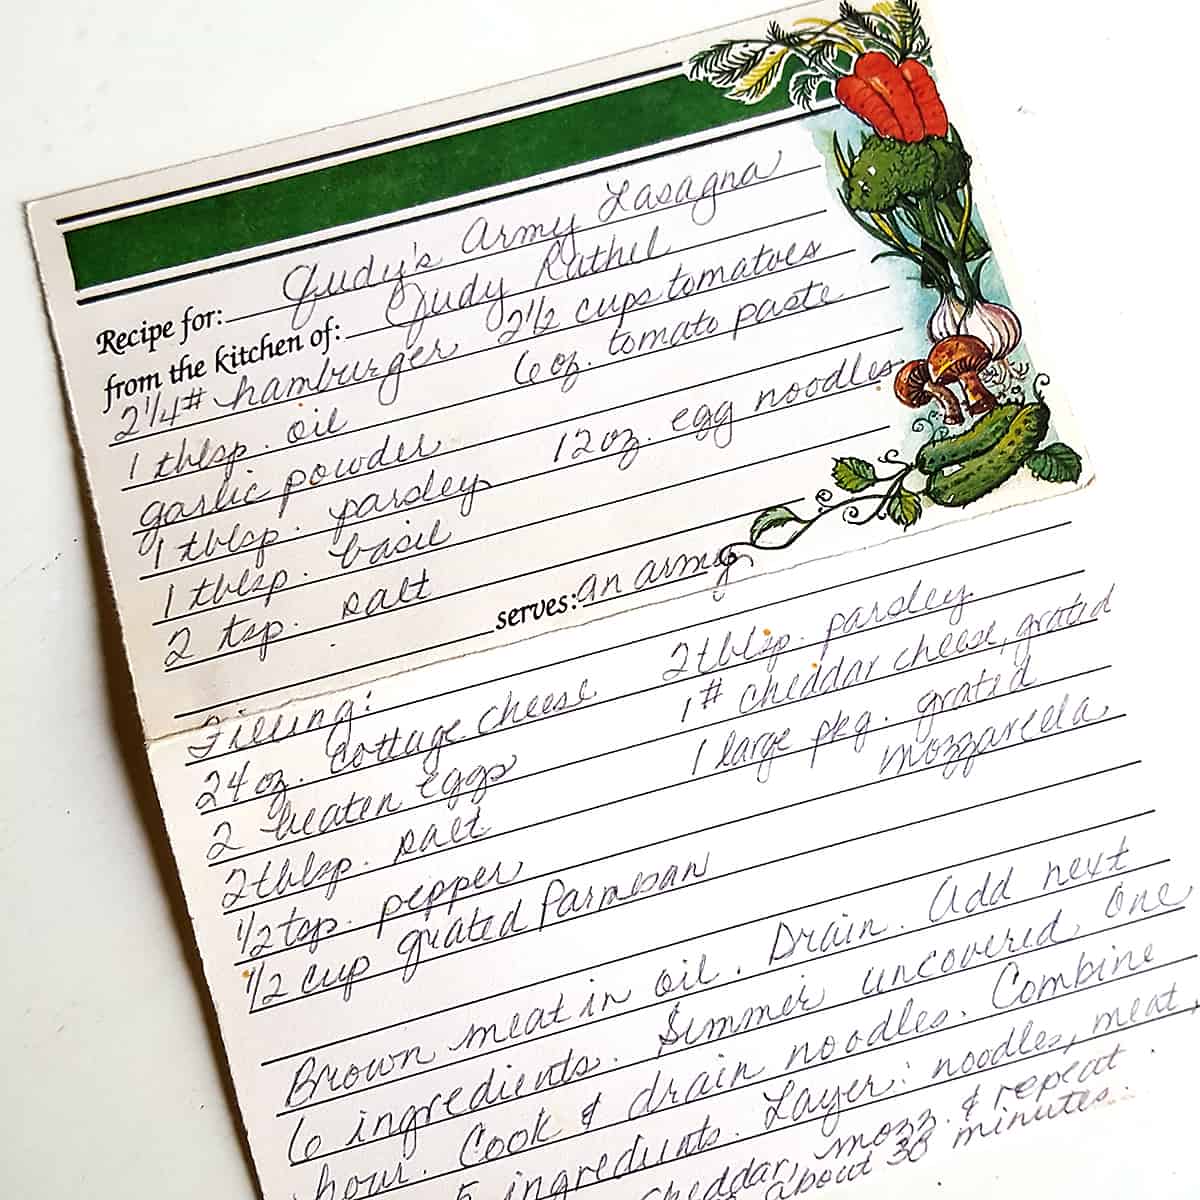 Recipe for: Judy's Army Lasagna
from the kitchen of: Judy Rathel
2 1/4# hamburger 2 1/2 cups tomatoes
1 tblsp. oil 6 oz. tomato paste
garlic powder
1 tblsp. parsley 12 oz. egg noodles
1 tblsp. basil
2 tsp. salt
serves: an army
Filling:
24 oz. cottage cheese 2 tblsp. parsley
2 beaten eggs 1# cheddar cheese, grated
2 tblsp. salt 1 large pkg. grated
1/2 tsp. pepper mozzarella
1/2 cup grated Parmesan
Brown meat in oil. Drain. Add next
6 ingredients. Simmer uncovered, one
hour. Cook & drain noodles. Combine
5 ingredients. Layer: noodles, meat,
cheddar, mozz. & repeat
about 30 minutes.